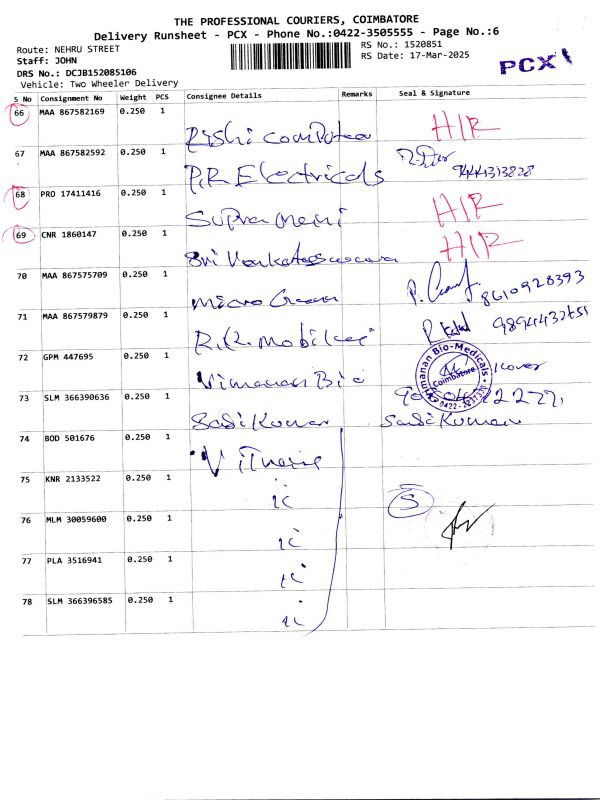 THE PROFESSIONAL COURIERS, COIMBATORE
Delivery Runsheet - PCX - Phone No.:0422-3505555 - Page No.:6
Route: NEHRU STREET
RS No.: 1520851
Staff: JOHN
RS Date: 17-Mar-2025
PCX
DRS No.: DCJB152085106
Vehicle: Two Wheeler Delivery
S No Consignment No Weight PCS Consignee Details Remarks Seal & Signature
66 MAA 867582169 0.250 1 Rishi HIR
67 MAA 867582592 0.250 1 P.R Electricals 9444313828
68 PRO 17411416 0.250 1 Supra HIR
69 CNR 1860147 0.250 1 Sri HIR
70 MAA 867575709 0.250 1 Micro Green 8610928393
71 MAA 867579879 0.250 1 R.R. Mobiles 9894432651
72 GPM 447695 0.250 1 Vimanan Bio Vimanan Bio-Medicals Coimbatore
73 SLM 366390636 0.250 1 Sasikumar Sasikumar
74 BOD 501676 0.250 1
75 KNR 2133522 0.250 1
76 MLM 30059600 0.250 1
77 PLA 3516941 0.250 1
78 SLM 366396585 0.250 1